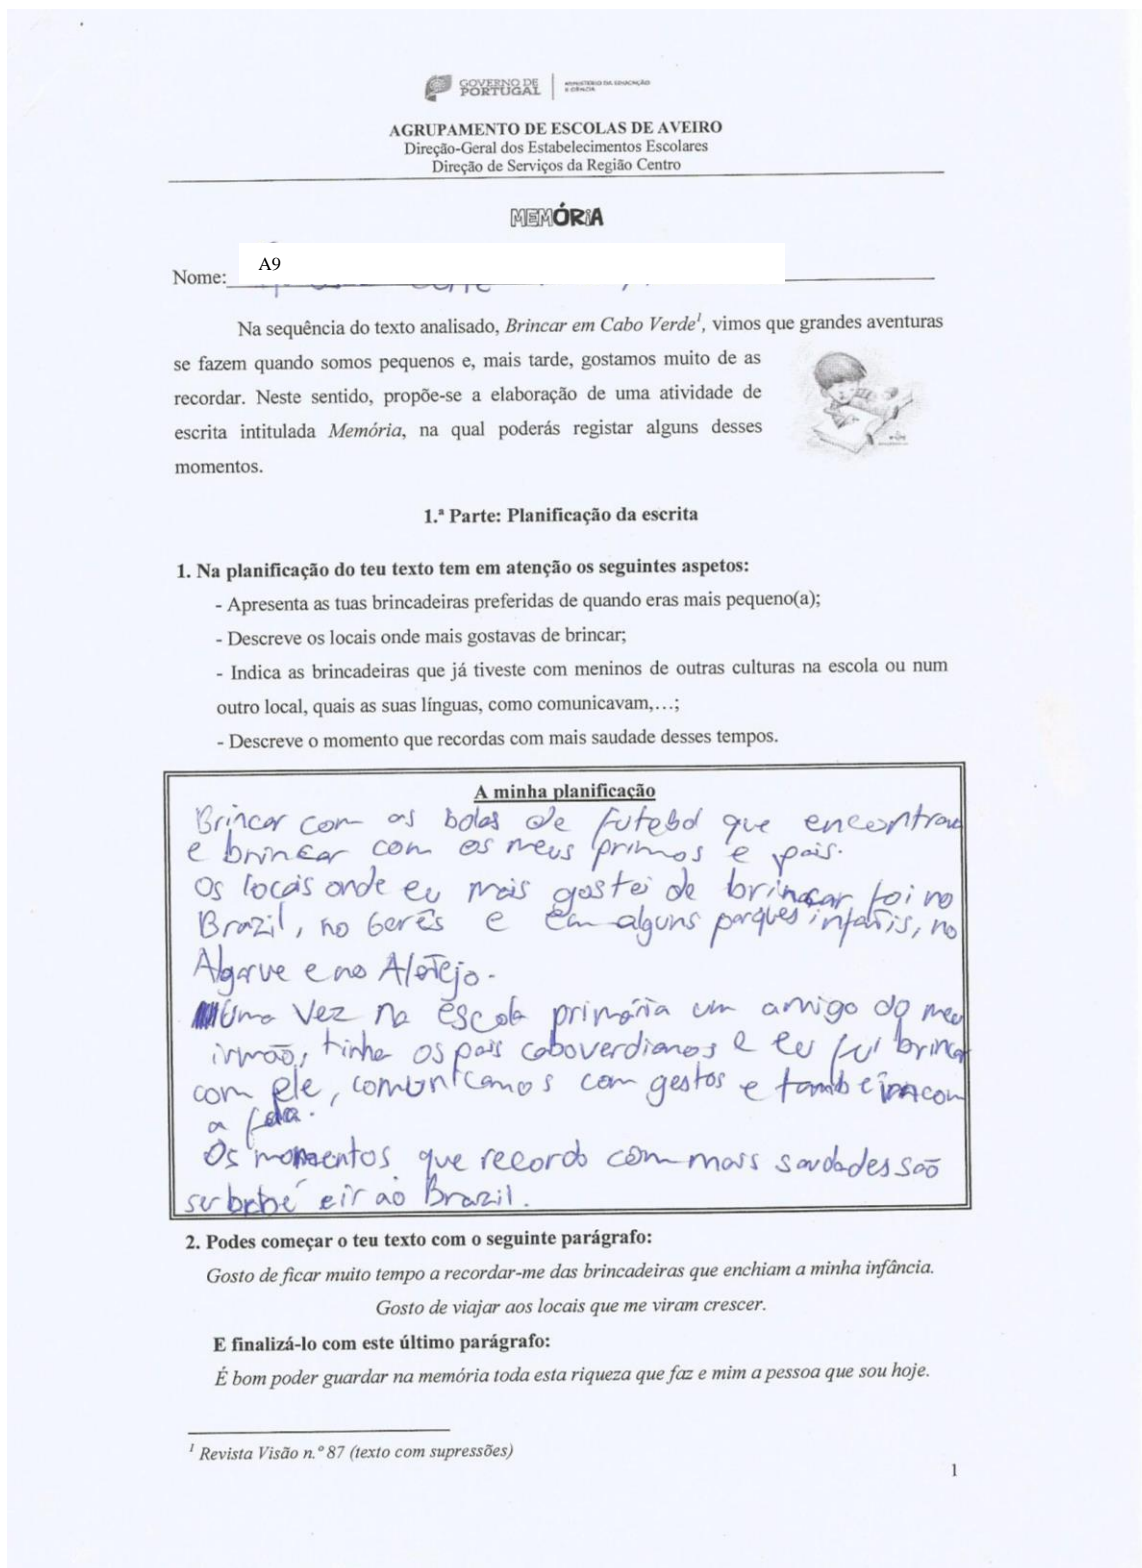 GOVERNO DE
PORTUGAL
MINISTÉRIO DA EDUCAÇÃO
E CIÊNCIA
AGRUPAMENTO DE ESCOLAS DE AVEIRO
Direção-Geral dos Estabelecimentos Escolares
Direção de Serviços da Região Centro
MEMÓRIA
Nome: A9
Na sequência do texto analisado, Brincar em Cabo Verde¹, vimos que grandes aventuras
se fazem quando somos pequenos e, mais tarde, gostamos muito de as
recordar. Neste sentido, propõe-se a elaboração de uma atividade de
escrita intitulada Memória, na qual poderás registar alguns desses
momentos.
1.ª Parte: Planificação da escrita
1. Na planificação do teu texto tem em atenção os seguintes aspetos:
- Apresenta as tuas brincadeiras preferidas de quando eras mais pequeno(a);
- Descreve os locais onde mais gostavas de brincar;
- Indica as brincadeiras que já tiveste com meninos de outras culturas na escola ou num
outro local, quais as suas línguas, como comunicavam,…;
- Descreve o momento que recordas com mais saudade desses tempos.
A minha planificação
Brincar com as bolas de futebol que encontrava
e brincar com os meus primos e pais.
Os locais onde eu mais gostei de brincar foi no
Brazil, no Gerês e em alguns parques infatis, no
Algarve e no Aletejo.
Uma vez na escola primária um amigo do meu
irmão, tinha os pais caboverdianos e eu fui brincar
com ele, comunicamos com gestos e também com
a fala.
Os momentos que recordo com mais saudades são
ser bebé e ir ao Brazil.
2. Podes começar o teu texto com o seguinte parágrafo:
Gosto de ficar muito tempo a recordar-me das brincadeiras que enchiam a minha infância.
Gosto de viajar aos locais que me viram crescer.
E finalizá-lo com este último parágrafo:
É bom poder guardar na memória toda esta riqueza que faz e mim a pessoa que sou hoje.
¹ Revista Visão n.º 87 (texto com supressões)
1